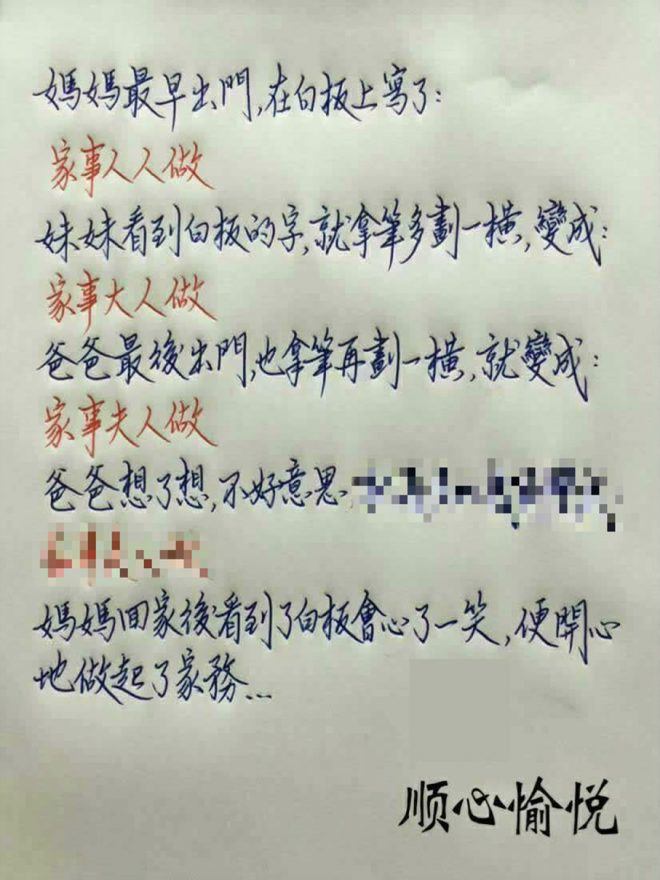 媽媽最早出門,在白板上寫了:
家事人人做
妹妹看到白板的字,就拿筆多劃一橫,變成:
家事大人做
爸爸最後出門,也拿筆再劃一橫,就變成:
家事夫人做
爸爸想了想,不好意思
媽媽回家後看到了白板會心了一笑,便開心
地做起了家務...
顺心愉悦